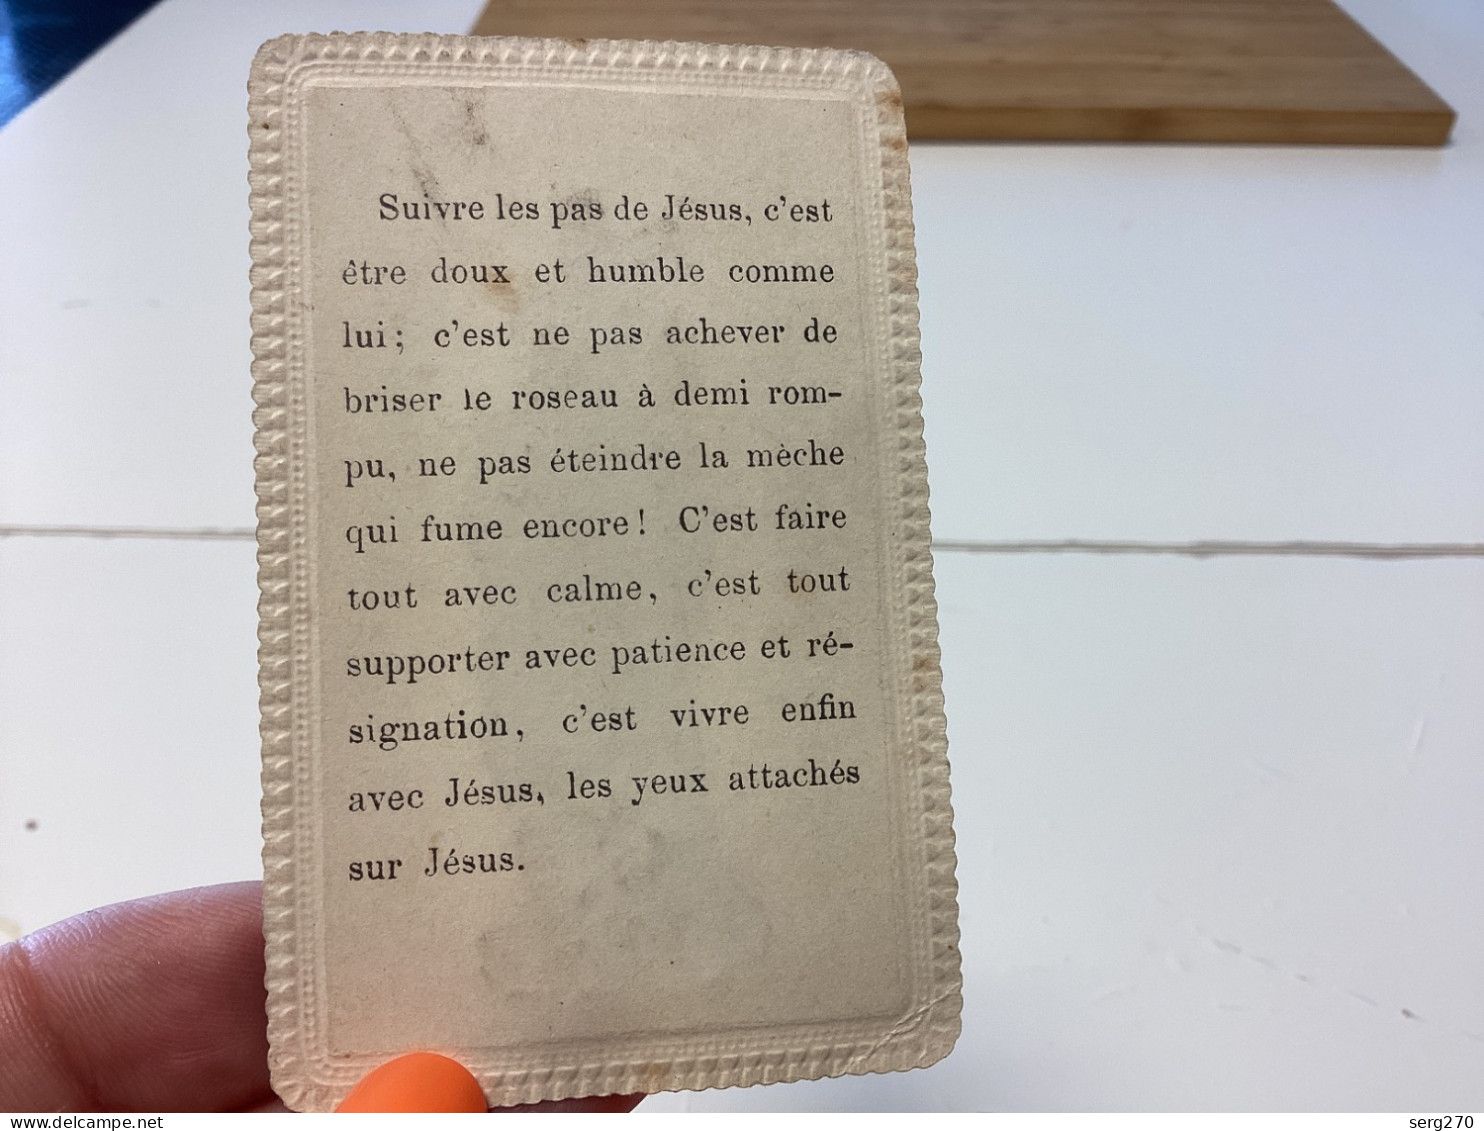 Suivre les pas de Jésus, c'est
être doux et humble comme
lui; c'est ne pas achever de
briser le roseau à demi rom-
pu, ne pas éteindre la mèche
qui fume encore! C'est faire
tout avec calme, c'est tout
supporter avec patience et ré-
signation, c'est vivre enfin
avec Jésus, les yeux attachés
sur Jésus.
www.delcampe.net
serg270